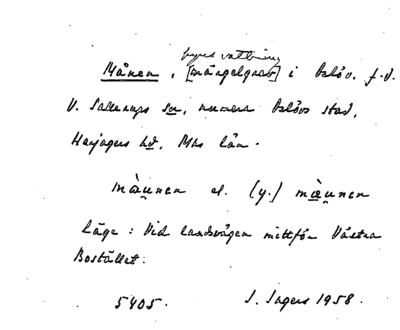 fyrs vattning
Månen, [märgelgrav] i Arlöv, f.d.
V. Sallerups sn, numera Arlövs stad,
Harjagers hd, Mhs län.
mạ̀u̯nen el. (y.) mæ̀u̯nen
Läge: Vid landsvägen mittför Västra
Bostället.
5405. I. Ingers 1958.